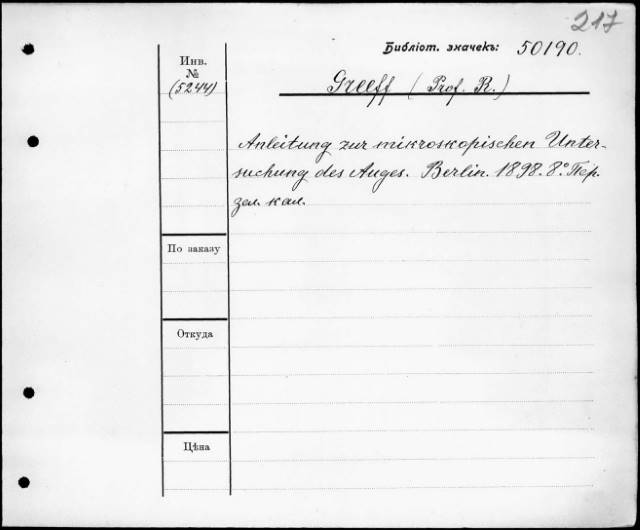 217
Библіот. значекъ: 50190.
Инв.
№
(5244)
Greeff (Prof. R.)
Anleitung zur mikroskopischen Unter-
suchung des Auges. Berlin. 1898. 8°. Пер.
зел. кал.
По заказу
Откуда
Цѣна